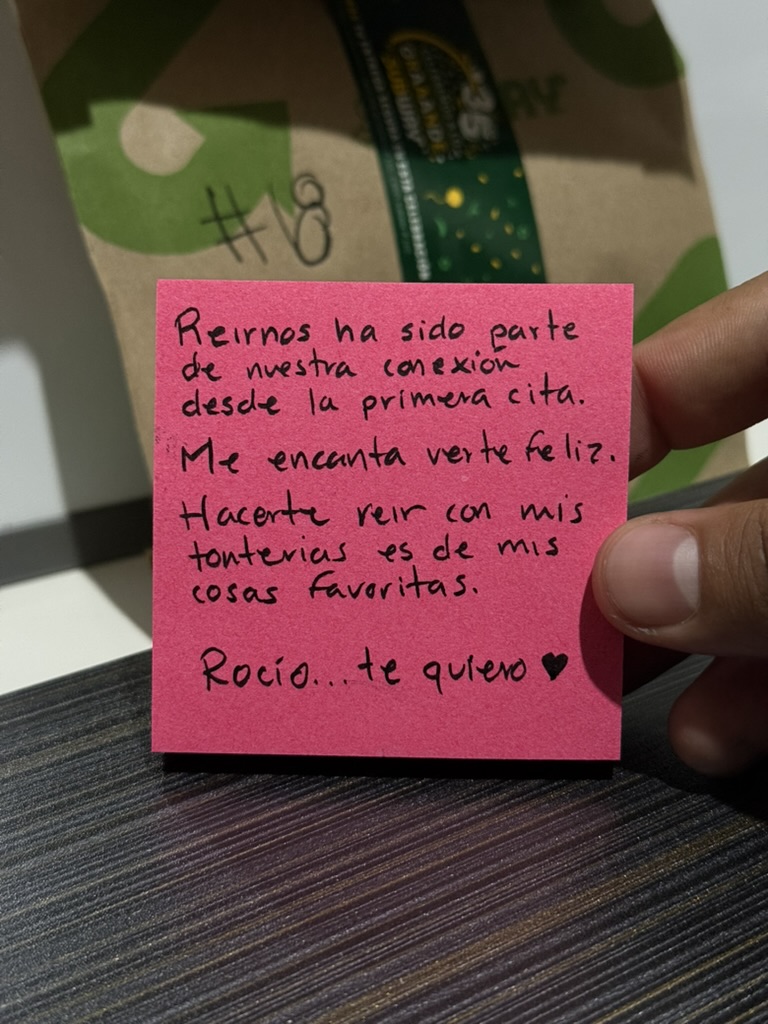 #18
Reirnos ha sido parte
de nuestra conexión
desde la primera cita.
Me encanta verte feliz.
Hacerte reir con mis
tonterias es de mis
cosas favoritas.
Rocío... te quiero ♥